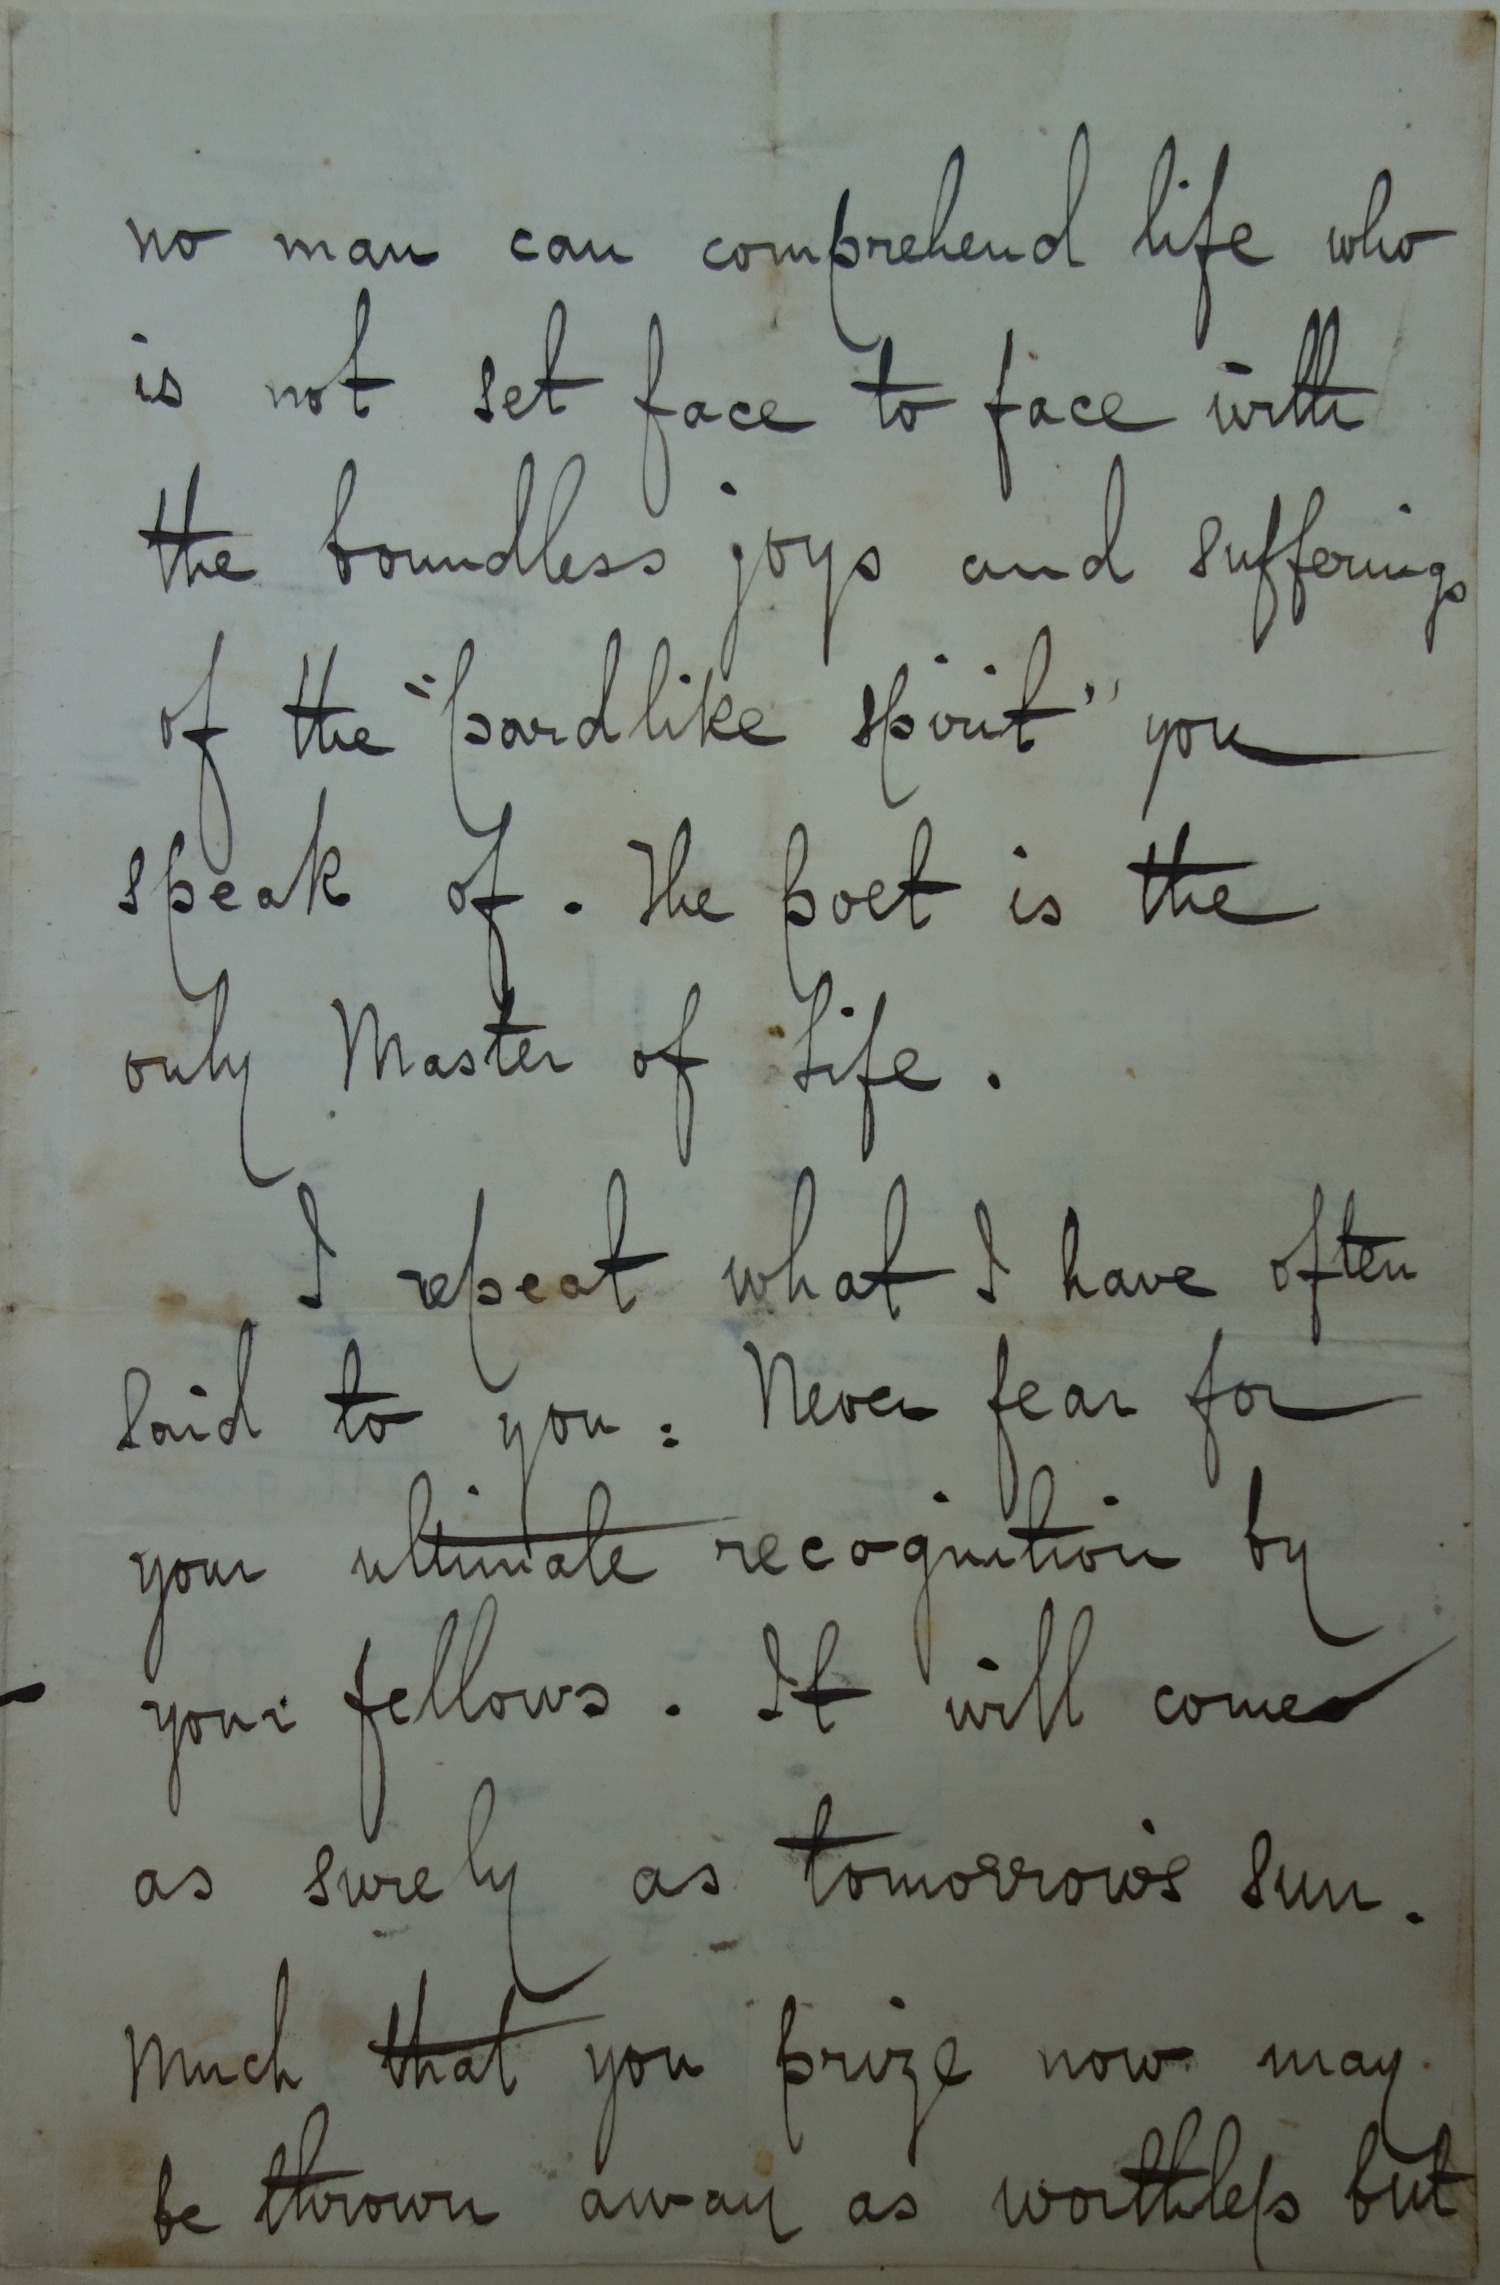 no man can comprehend life who
is not set face to face with
the boundless joys and sufferings
of the "pardlike spirit" you
speak of. The poet is the
only Master of Life.
I repeat what I have often
said to you: Never fear for
your ultimate recognition by
your fellows. It will come
as surely as tomorrow's sun.
Much that you prize now may
be thrown away as worthless but